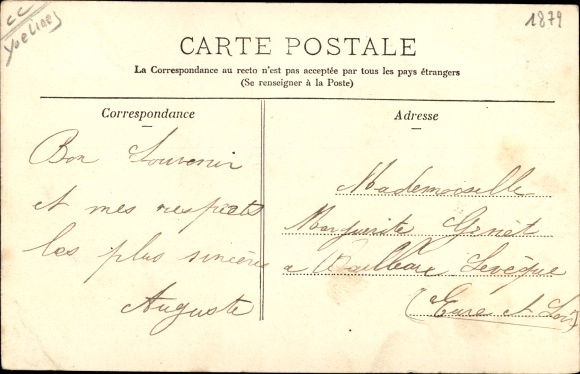 CC
Yvelines
1879
CARTE POSTALE
La Correspondance au recto n'est pas acceptée par tous les pays étrangers
(Se renseigner à la Poste)
Correspondance
Bon Souvenir
et mes respects
les plus sincères
Auguste
Adresse
Mademoiselle
Marguerite Genêt
a Levèque
(Eure et Loir)